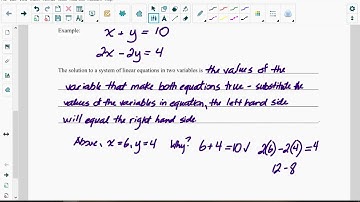 Example:
x + y = 10
2x - 2y = 4
The solution to a system of linear equations in two variables is the values of the
variable that make both equations true - substitute the
values of the variables in equation, the left hand side
will equal the right hand side
Above, x = 6, y = 4 Why? 6 + 4 = 10 √ 2(6) - 2(4) = 4
12 - 8